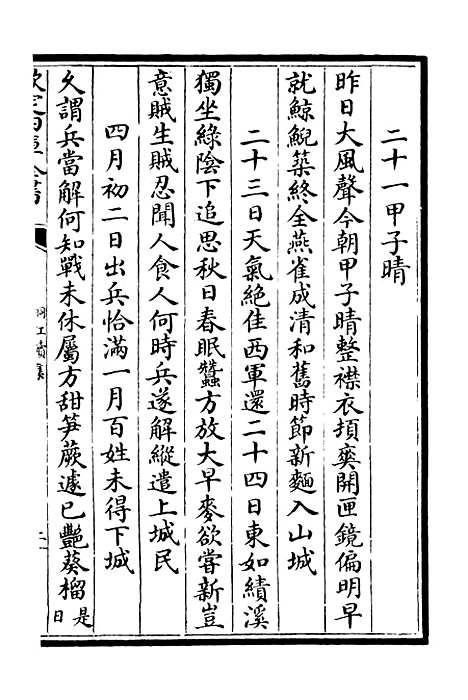 二十一甲子晴
昨日大風聲今朝甲子晴整襟衣頊爽開匣鏡偏明早
就鯨鯢築終全燕雀成清和舊時節新麵入山城
二十三日天氣絶佳西軍還二十四日東如績溪
獨坐綠陰下追思秋日春眠蠶方放大早麥欲嘗新豈
意賊生賊忍聞人食人何時兵遂解縱遣上城民
四月初二日出兵恰滿一月百姓未得下城
久謂兵當解何知戰未休屬方甜笋蕨遽已豔葵榴是日
欽定四庫全書
桐江續集